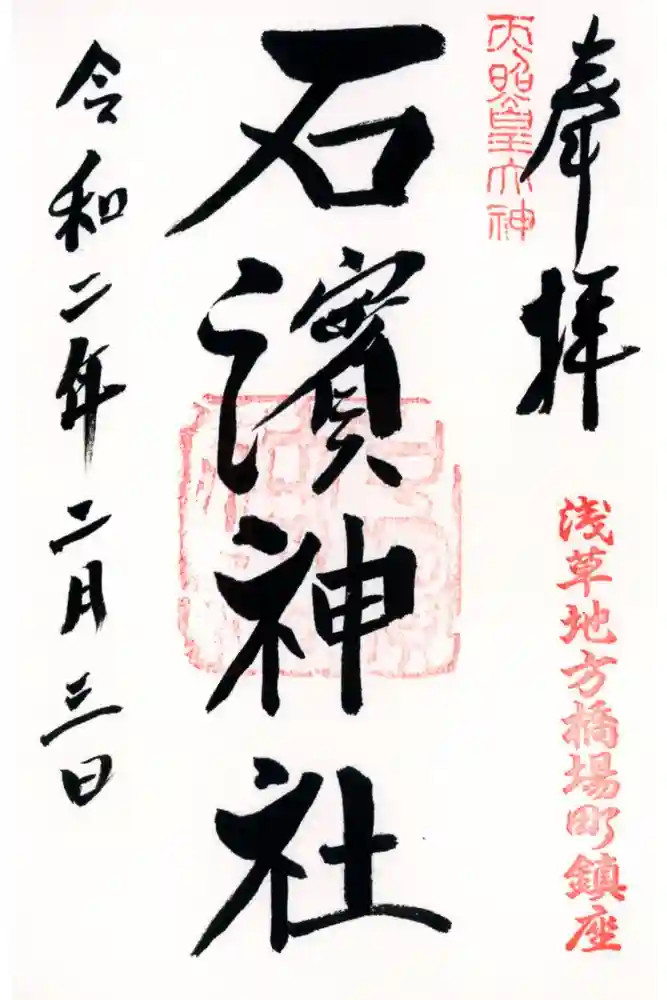 奉拝
天照皇大神
浅草地方橋場町鎮座
石濱神社
令和二年二月三日